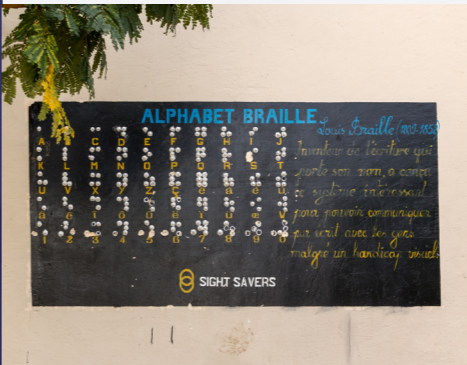 ALPHABET BRAILLE
A B C D E F G H I J
K L M N O P Q R S T
U V X Y Z Ç é à è ù
â ê î ô û ë ï ü œ W
1 2 3 4 5 6 7 8 9 0
Louis Braille (1809-1852)
Inventeur de l'écriture qui
porte son nom, a conçu
ce système intéressant
pour pouvoir communiquer
par écrit avec les gens
malgré un handicap visuel
SIGHT SAVERS